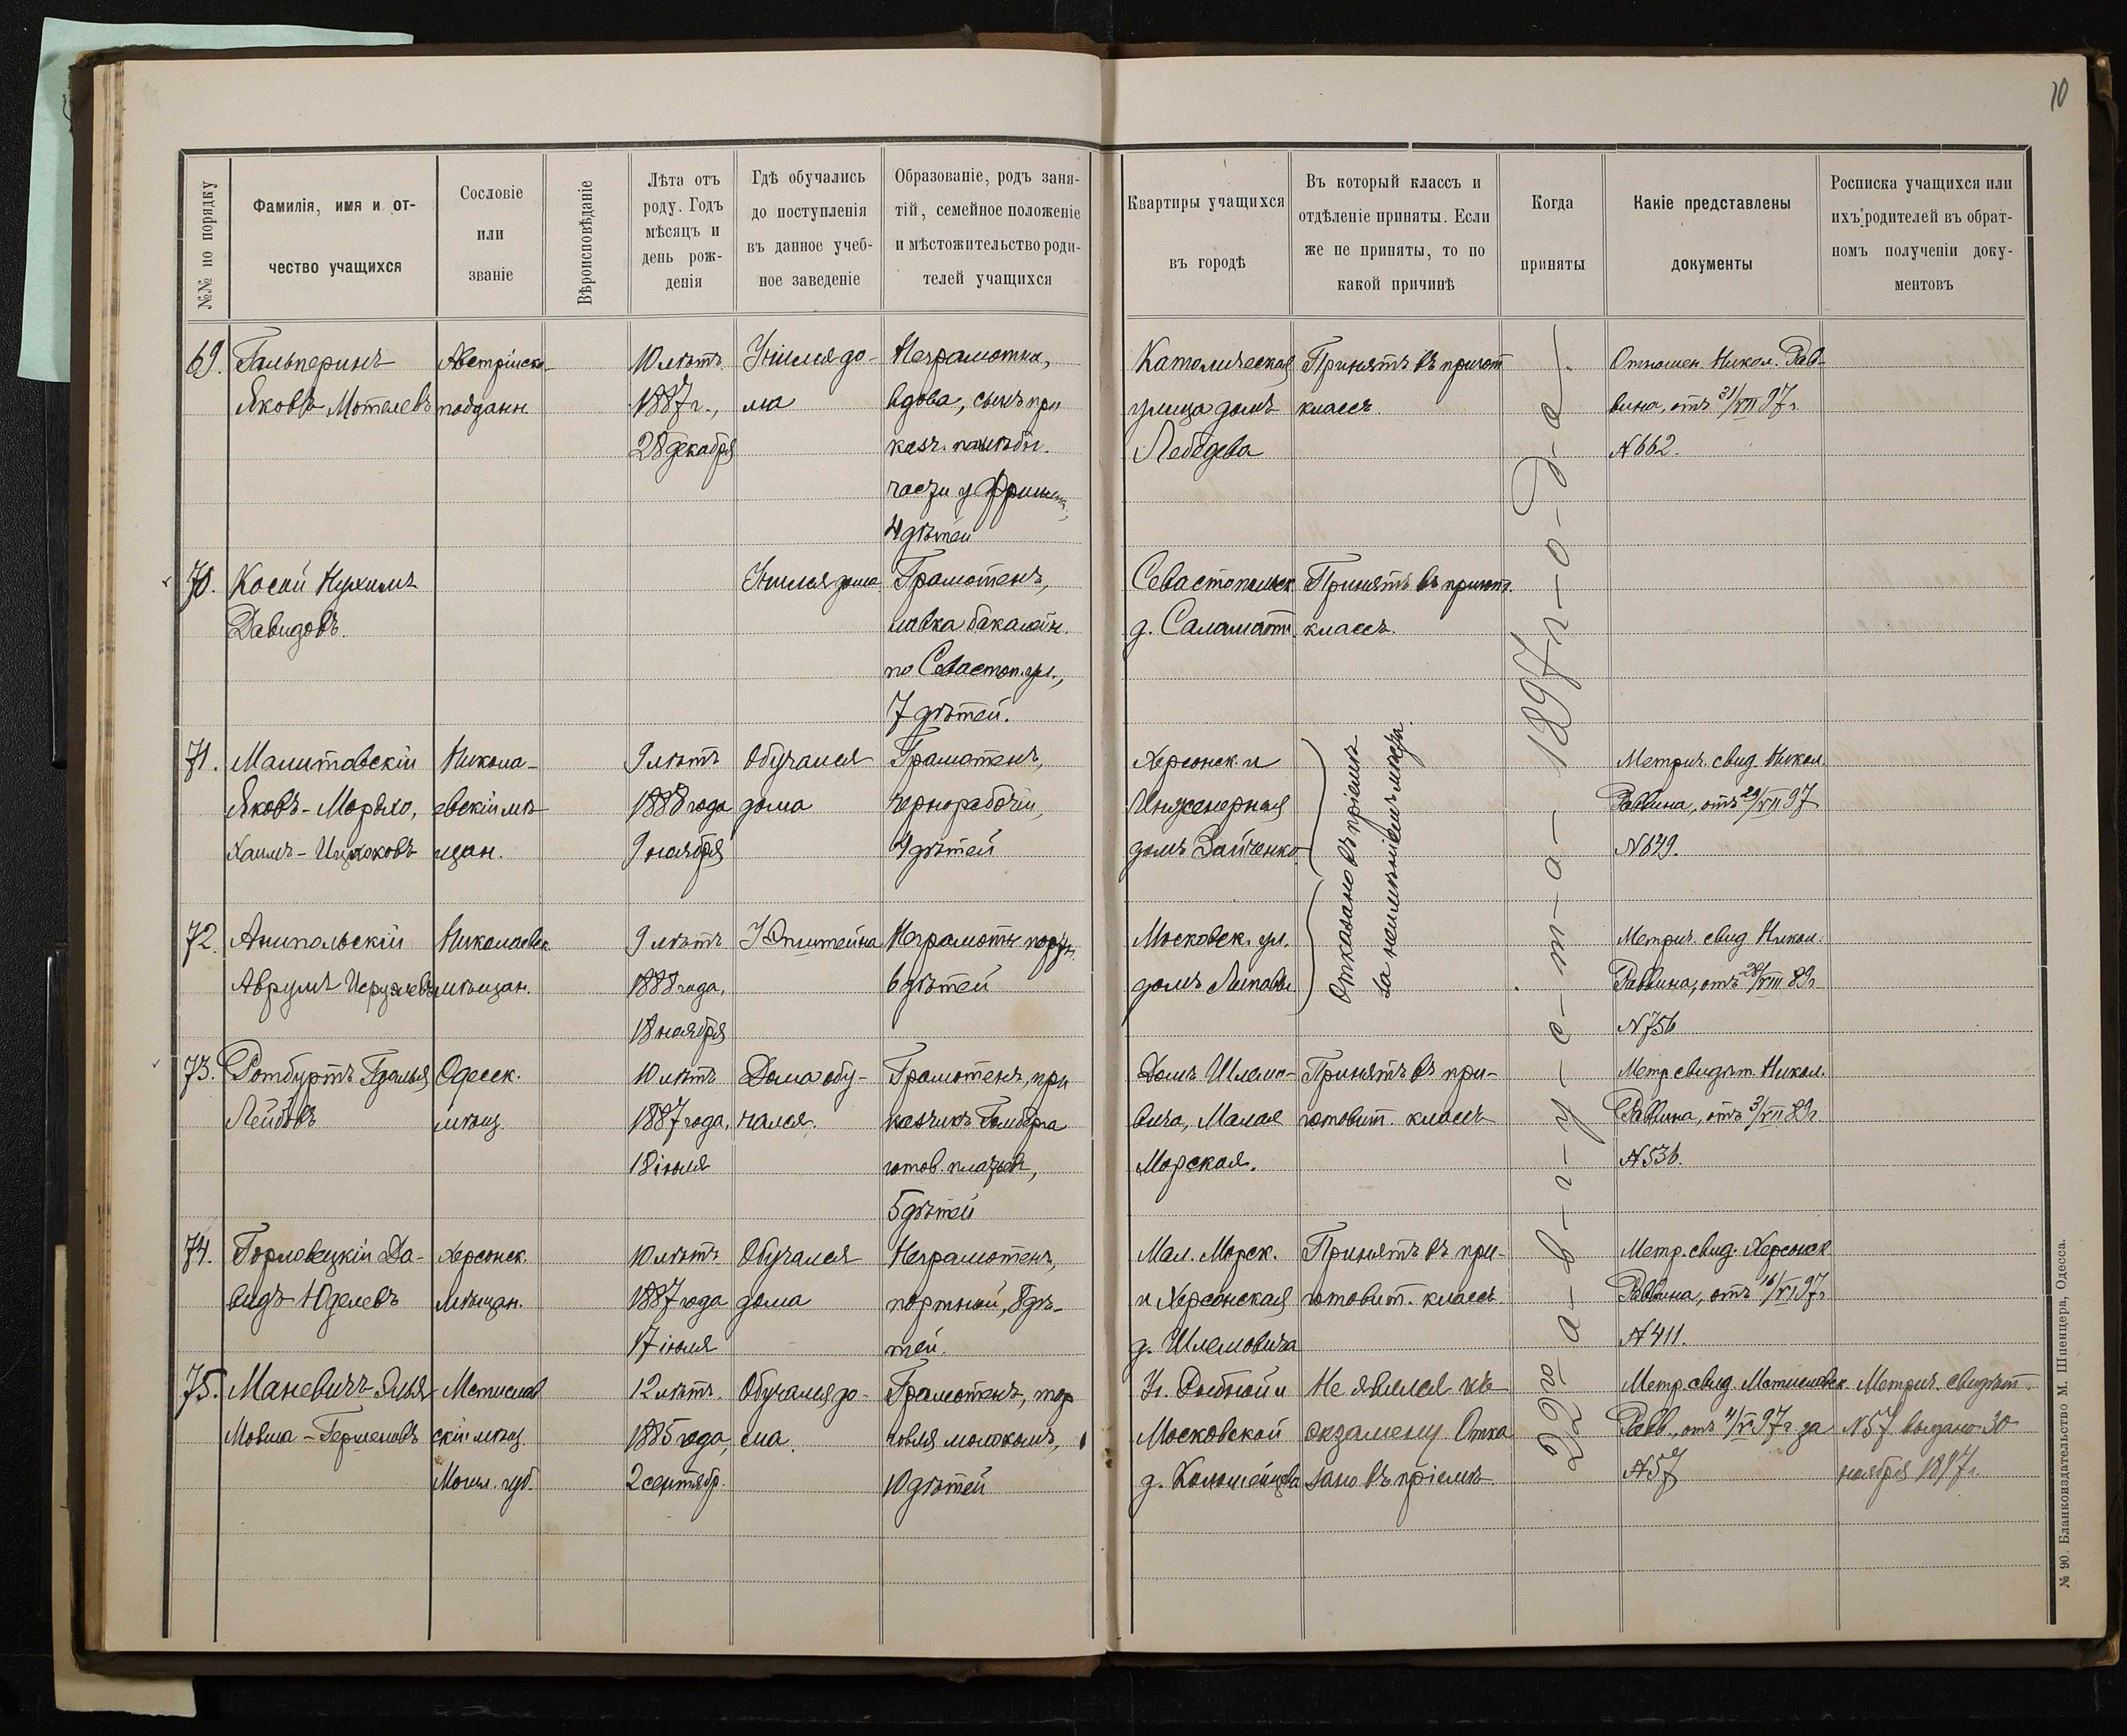 10
№№ по порядку
Фамилія, имя и от-
чество учащихся
Сословіе
или
званіе
Вѣроисповѣданіе
Лѣта отъ
роду. Годъ
мѣсяцъ и
день рож-
денія
Гдѣ обучались
до поступленія
въ данное учеб-
ное заведеніе
Образованіе, родъ заня-
тій, семейное положеніе
и мѣстожительство роди-
телей учащихся
Квартиры учащихся
въ городѣ
Въ который классъ и
отдѣленіе приняты. Если
же не приняты, то по
какой причинѣ
Когда
приняты
Какіе представлены
документы
Росписка учащихся или
ихъ родителей въ обрат-
номъ полученіи доку-
ментовъ
69.
Гальперинъ
Яковъ Мотелевъ
Австрійско
поддан.
10 лѣтъ
1887 г.,
28 декабря
Учился до-
ма
Неграмотна,
вдова, сынъ при
казч.
4 дѣтей
Католическая
улица домъ
Лебедева
Принятъ въ пригот
классъ.
Отношен. Никол. Рав-
вина, отъ 31/VII 97 г.
№ 662.
70.
Косой Нухимъ
Давидовъ.
Учился дома
Грамотенъ,
лавка бакалейн.
по Севастоп. ул.,
7 дѣтей.
Севастопольск
д. Саламатин.
Принятъ въ пригот.
классъ.
71.
Малитовскій
Яковъ-Мордко,
Хаимъ-Ицхоковъ
Никола-
евскій мѣ
щан.
9 лѣтъ
1888 года
9 ноября
Обучался
дома
Грамотенъ,
чернорабочій,
4 дѣтей
Херсонск и
Инженерная
домъ Зайченко
Отказано въ пріемѣ
за неимѣніемъ мѣста.
Метрич. свид. Никол.
Раввина, отъ 29/VII 97
№ 649.
72.
Анипольскій
Аврумъ Исруелевъ
Николаевск
мѣщан.
9 лѣтъ
1888 года,
18 ноября
У Эпштейна
Неграмотн. портн.
6 дѣтей
Московск. ул.
домъ Липовы
Метрич. свид. Никол.
Раввина, отъ 28/VIII 89 г
№ 756
73.
Ротбуртъ Гдалья
Лейбовъ
Одесск.
мѣщ.
10 лѣтъ
1887 года,
18 іюля
Дома обу-
чался.
Грамотенъ, при
казчикъ Гамберга
готов. платья,
5 дѣтей
Домъ Шлемо-
вича, Малая
Морская.
Принятъ въ при-
готовит. классъ
Метр. свидѣт. Никол.
Раввина, отъ 3/VII 89 г
№ 536.
74.
Горловецкій Да-
видъ Юделевъ
Херсонск.
мѣщан.
10 лѣтъ
1887 года
17 іюля
Обучался
дома
Неграмотенъ,
портной, 8 дѣ-
тей.
Мал. Морск.
и Херсонская
д. Шлемовича
Принятъ въ при-
готовит. классъ.
Метр. свид. Херсонск
Раввина, отъ 16/VI 97 г
№ 411.
75.
Маневичъ Элья
Мовша-Герценовъ
Мстислав
скій мѣщ.
Могил. губ.
12 лѣтъ.
1885 года,
2 сентябр.
Обучался до-
ма.
Грамотенъ, тор
говля молокомъ,
10 дѣтей
Уг. Рыбной и
Московской
д. Коломейцева
Не явился къ
экзамену Отка
зано въ пріемѣ
Метр. свид. Мстиславск
Равв., отъ 4/V 97 г за
№ 57
Метрич. свидѣт.
№ 57 выдано 30
ноября 1897 г.
22го а-в-г-у-с-т-а- 1897 г-о-д-а
№ 90. Бланкоиздательство М. Шпенцера, Одесса.